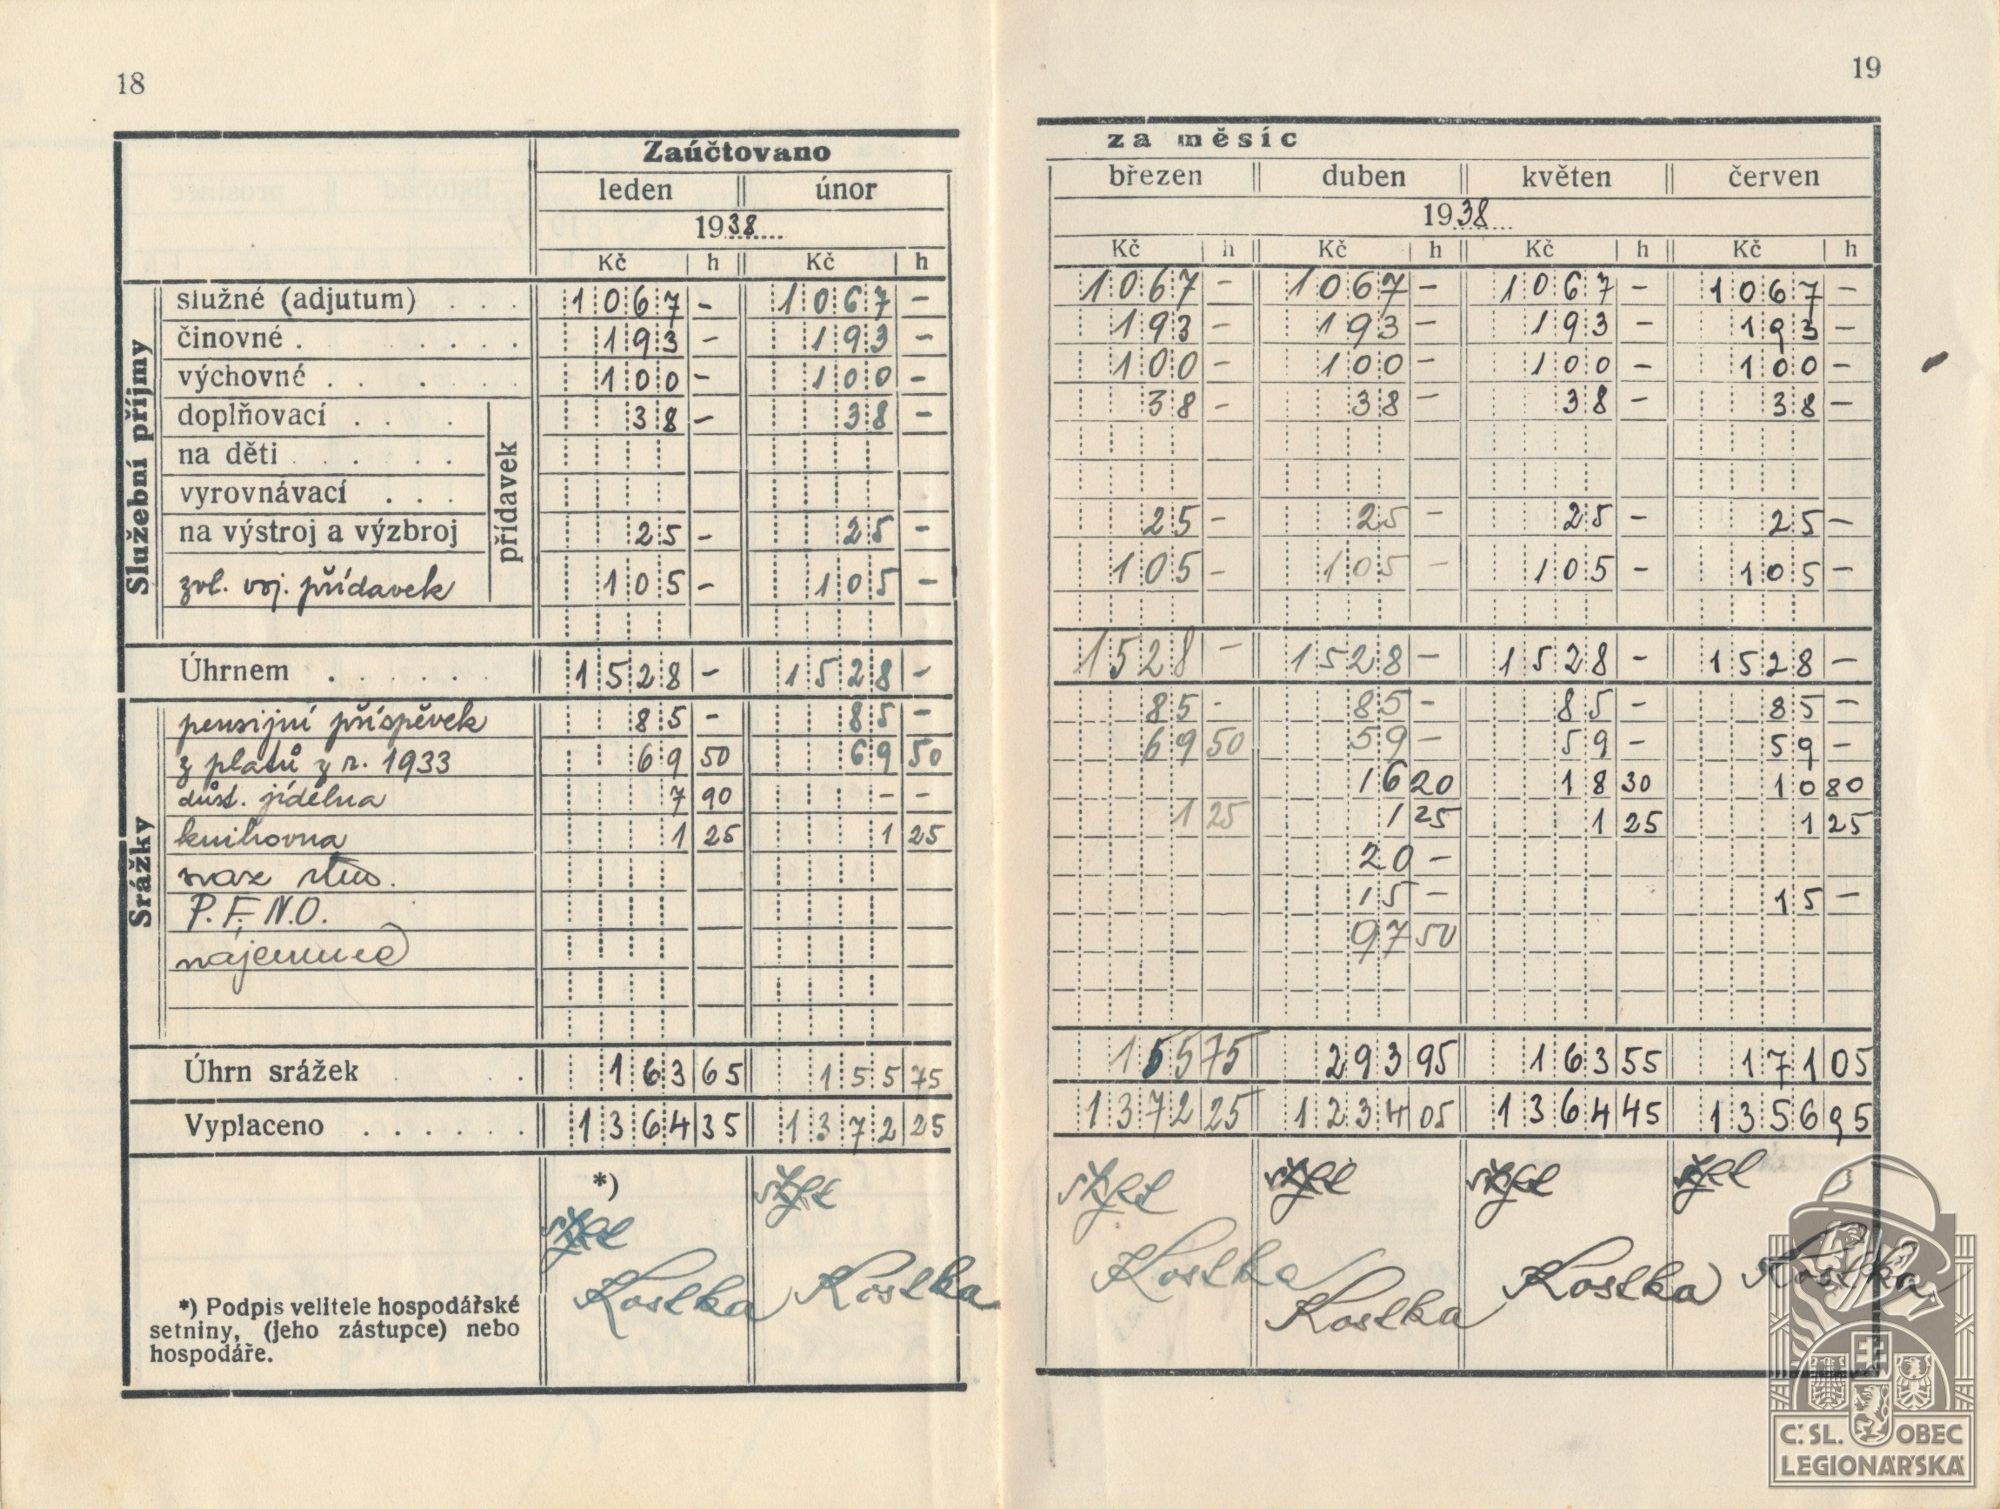 18
19
Zaúčtovano za měsíc
leden únor březen duben květen červen
1938 1938
Kč h Kč h Kč h Kč h Kč h Kč h
Služební příjmy
služné (adjutum) . . . 1067 - 1067 - 1067 - 1067 - 1067 - 1067 -
činovné . . . . . . 193 - 193 - 193 - 193 - 193 - 193 -
výchovné . . . . . . 100 - 100 - 100 - 100 - 100 - 100 -
přídavek
doplňovací . . . . 38 - 38 - 38 - 38 - 38 - 38 -
na děti . . . . .
vyrovnávací . . .
na výstroj a výzbroj 25 - 25 - 25 - 25 - 25 - 25 -
zvl. voj. přídavek 105 - 105 - 105 - 105 - 105 - 105 -
Úhrnem . . . . . . 1528 - 1528 - 1528 - 1528 - 1528 - 1528 -
Srážky
pensijní příspěvek 85 - 85 - 85 - 85 - 85 - 85 -
z platů z r. 1933 69 50 69 50 69 50 59 - 59 - 59 -
důst. jídelna 7 90 - - 16 20 18 30 10 80
knihovna 1 25 1 25 1 25 1 25 1 25 1 25
svaz 20 -
P. F. N.O. 15 - 15 -
nájemné 97 50
Úhrn srážek . . 163 65 155 75 155 75 293 95 163 55 171 05
Vyplaceno . . . . . . 1364 35 1372 25 1372 25 1234 05 1364 45 1356 95
*)
Kostka Kostka Kostka Kostka Kostka Kostka
*) Podpis velitele hospodářské
setniny, (jeho zástupce) nebo
hospodáře.
Č. SL. OBEC
LEGIONÁŘSKÁ